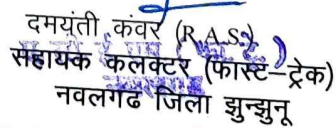 दमयंती कंवर (R.A.S.)
सहायक कलक्टर (फास्ट-ट्रेक)
नवलगढ जिला झुन्झुनू